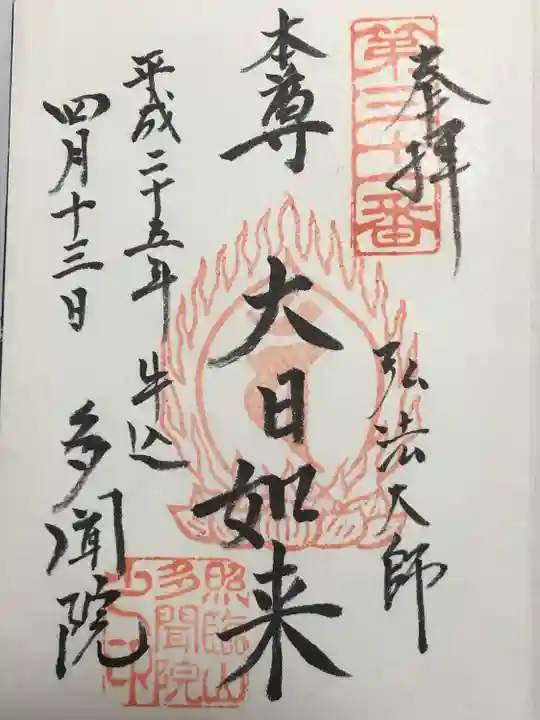 奉拝
弘法大師
本尊 大日如来
平成二十五年
四月十三日
牛込
多聞院
照臨山
多聞院